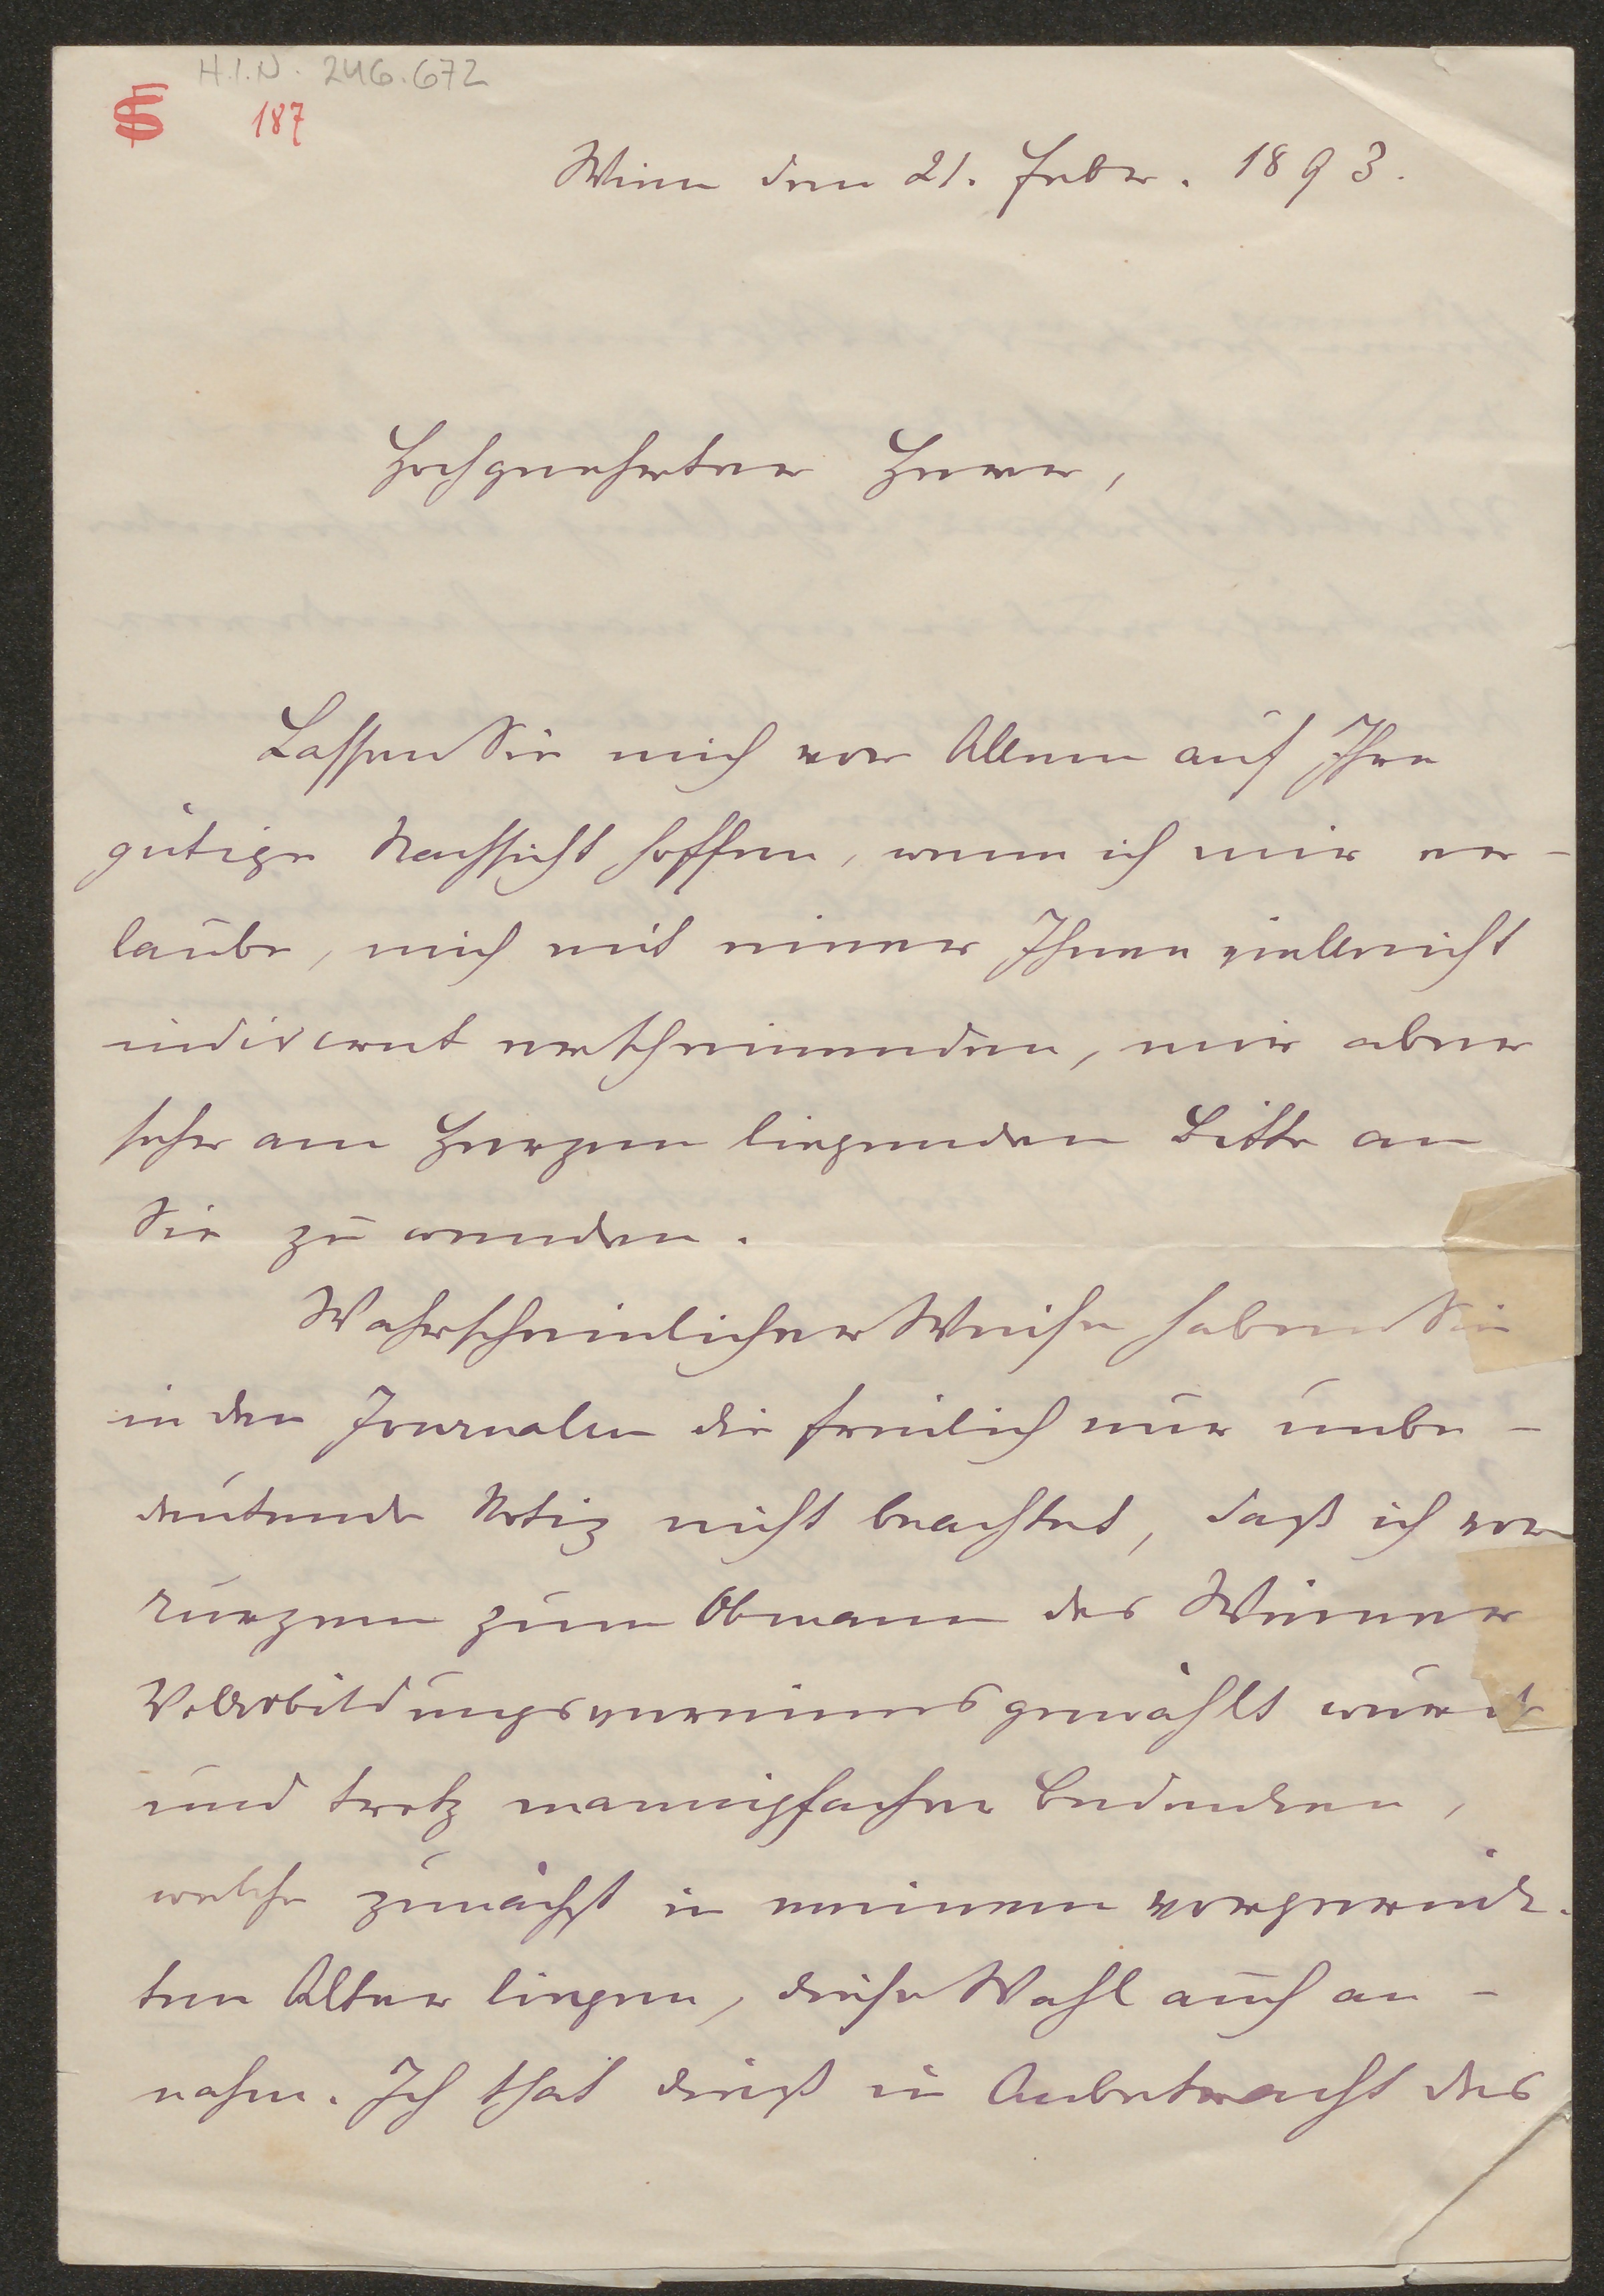 H.I.N. 246.672
187
Wien den 21. Febr. 1893.
Hochgeehrter Herr,
Lassen Sie mich vor Allem auf Ihre
gütige Nachsicht hoffen, wenn ich mir er-
laube, mich mit einer Ihnen vielleicht
indiscret erscheinenden, mir aber
sehr am Herzen liegenden Bitte an
Sie zu wenden.
Wahrscheinlicher Weise haben Sie
in den Journalen die freilich nur unbe-
deutende Notiz nicht beachtet, daß ich vor
kurzem zum Obmann des Wiener
Volksbildungsvereines gewählt wurde
und trotz mannigfacher Bedenken,
welche zunächst in meinem vorgerück-
ten Alter liegen, diese Wahl auch an-
nahm. Ich that dieß in Anbetracht des